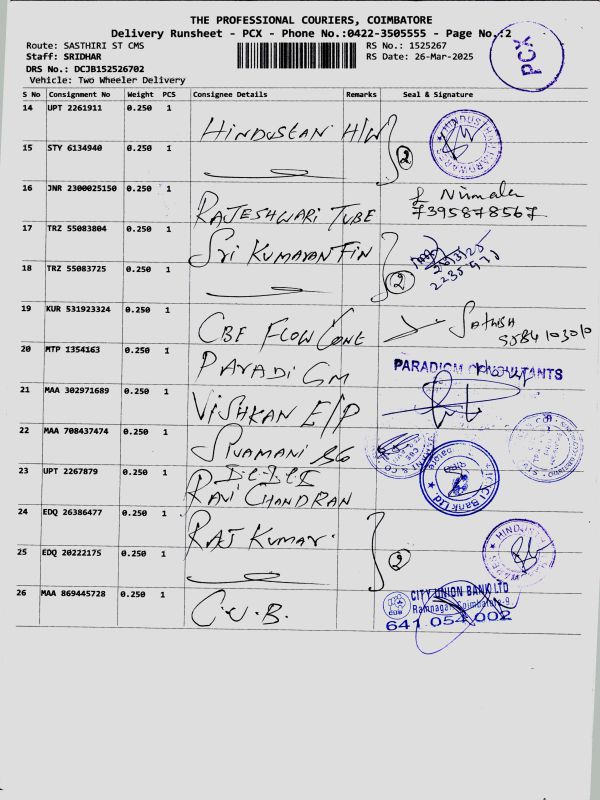 THE PROFESSIONAL COURIERS, COIMBATORE
Delivery Runsheet - PCX - Phone No.:0422-3505555 - Page No.:2
PCX
Route: SASTHIRI ST CMS
RS No.: 1525267
Staff: SRIDHAR
RS Date: 26-Mar-2025
DRS No.: DCJB152526702
Vehicle: Two Wheeler Delivery
S No Consignment No Weight PCS Consignee Details Remarks Seal & Signature
14 UPT 2261911 0.250 1 HINDUSTAN H/W
15 STY 6134940 0.250 1 2
16 JNR 2300025150 0.250 1 RAJESHWARI TUBE Nirmala
7395878567
17 TRZ 55083804 0.250 1 Sri KUMARAN FIN
18 TRZ 55083725 0.250 1 2
19 KUR 531923324 0.250 1 CBE FLOW CONE Sathish
20 MTP 1354163 0.250 1 PARADIGM PARADIGM CONSULTANTS
21 MAA 302971689 0.250 1 VISHKAN E/P
22 MAA 708437474 0.250 1 SIVAMANI
23 UPT 2267879 0.250 1 RAVI CHANDRAN
24 EDQ 26386477 0.250 1 RAJ KUMAR
25 EDQ 20222175 0.250 1 2
26 MAA 869445728 0.250 1 C.U.B. CITY UNION BANK LTD
Ramnagar, Coimbatore-9
CUB
641 054 002